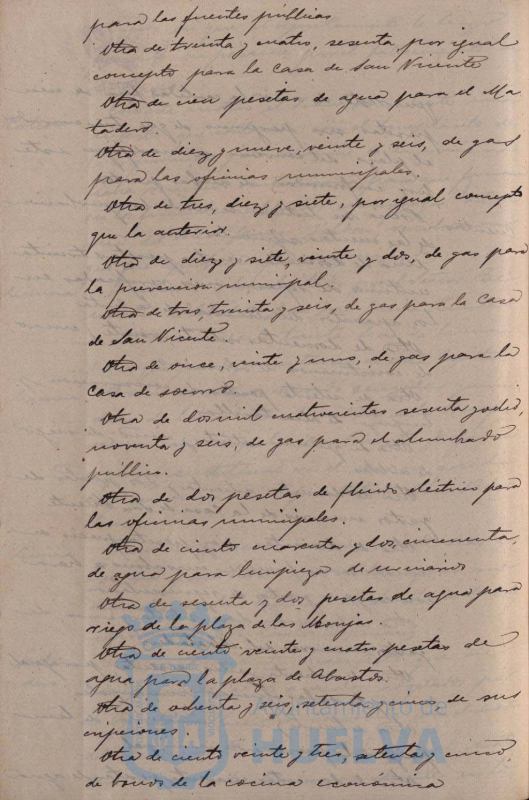 para las fuentes públicas
Otra de treinta y cuatro, sesenta, por igual
concepto para la casa de San Vicente
Otra de cien pesetas de agua para el Ma
tadero.
Otra de diez y nueve, veinte y seis, de gas
para las oficinas municipales.
Otra de tres, diez y siete, por igual concepto
que la anterior.
Otra de diez y siete, veinte y dos, de gas para
la prevencion municipal.
Otra de tres, treinta y seis, de gas para la Casa
de San Vicente.
Otra de once, veinte y uno, de gas para la
casa de socorro.
Otra de dos mil cuatrocientas sesenta y ocho,
noventa y seis, de gas para el alumbrado
público.
Otra de dos pesetas de fluido eléctrico para
las oficinas municipales.
Otra de ciento cuarenta y dos, cincuenta,
de agua para limpieza de urinarios
Otra de sesenta y dos pesetas de agua para
riego de la plaza de las Monjas.
Otra de ciento veinte y cuatro pesetas de
agua para la plaza de Abastos.
Otra de ochenta y seis, setenta y cinco de sus
cripciones.
Otra de ciento veinte y tres, setenta y cinco,
de bonos de la cocina económica
Ayuntamiento de
HUELVA